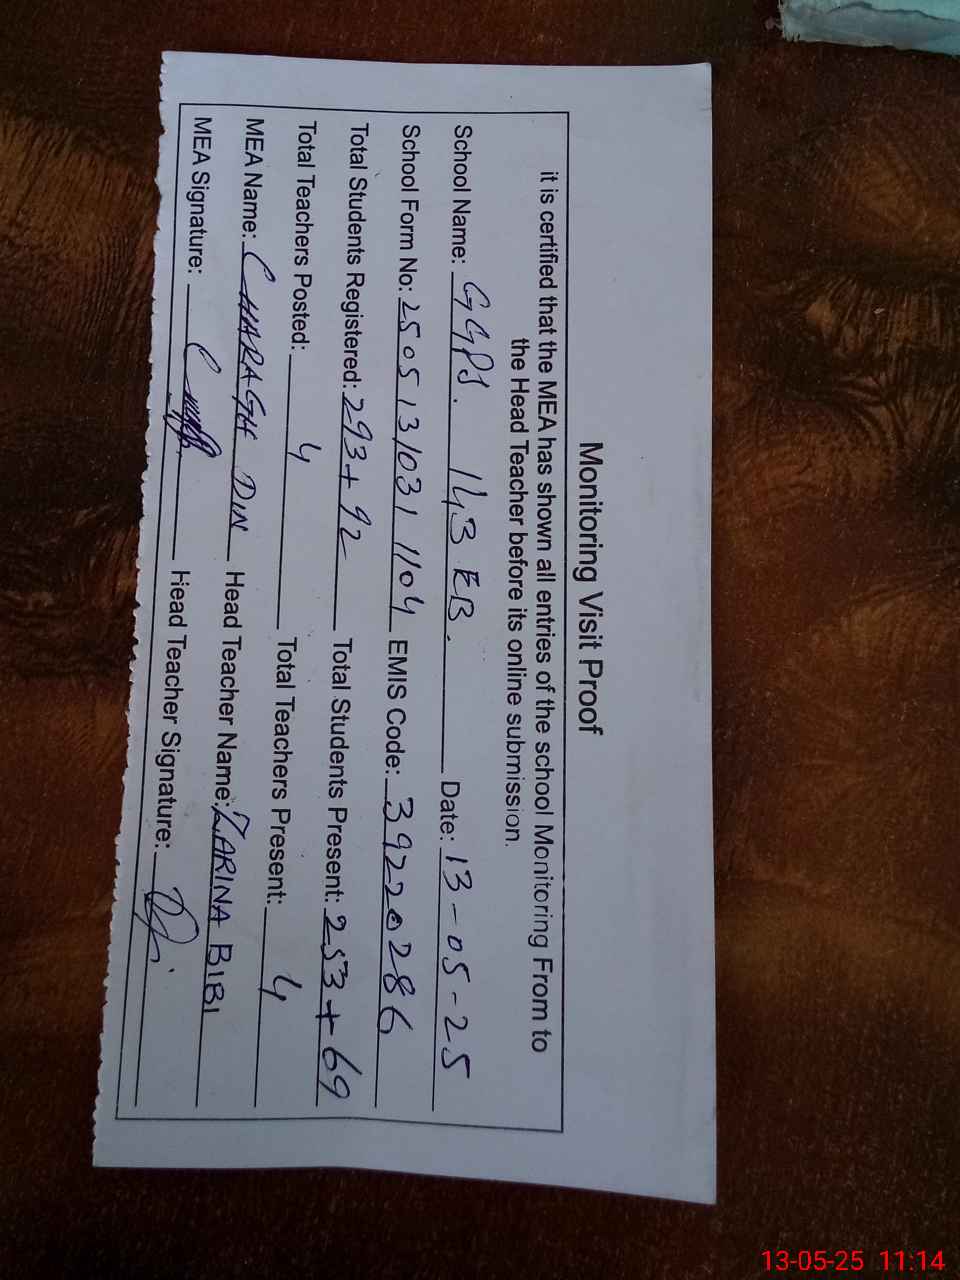 Monitoring Visit Proof
it is certified that the MEA has shown all entries of the school Monitoring From to
the Head Teacher before its online submission.
School Name: GGPS. 143 EB. Date: 13-05-25
School Form No: 2505131031104 EMIS Code: 39220286
Total Students Registered: 293+92 Total Students Present: 253+69
Total Teachers Posted: 4 Total Teachers Present: 4
MEA Name: CHARAGH DIN Head Teacher Name: ZARINA BIBI
MEA Signature: Head Teacher Signature:
13-05-25 11:14